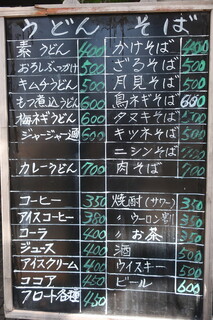 うどん そば
素うどん 400
おろしぶっかけ 500
キムチうどん 500
もつ煮込うどん 600
梅ネギうどん 600
ジャージャー麺 600
カレーうどん 700
かけそば 400
ざるそば 500
月見そば 500
鳥ネギそば 600
タヌキそば 500
キツネそば 500
ニシンそば
肉そば 700
コーヒー 350
アイスコーヒー 380
コーラ 400
ジュース 400
アイスクリーム 400
ココア 450
フロート各種 450
焼酎(サワー) 350
〃 ウーロン割 350
〃 お茶 350
酒 500
ウイスキー 500
ビール 600